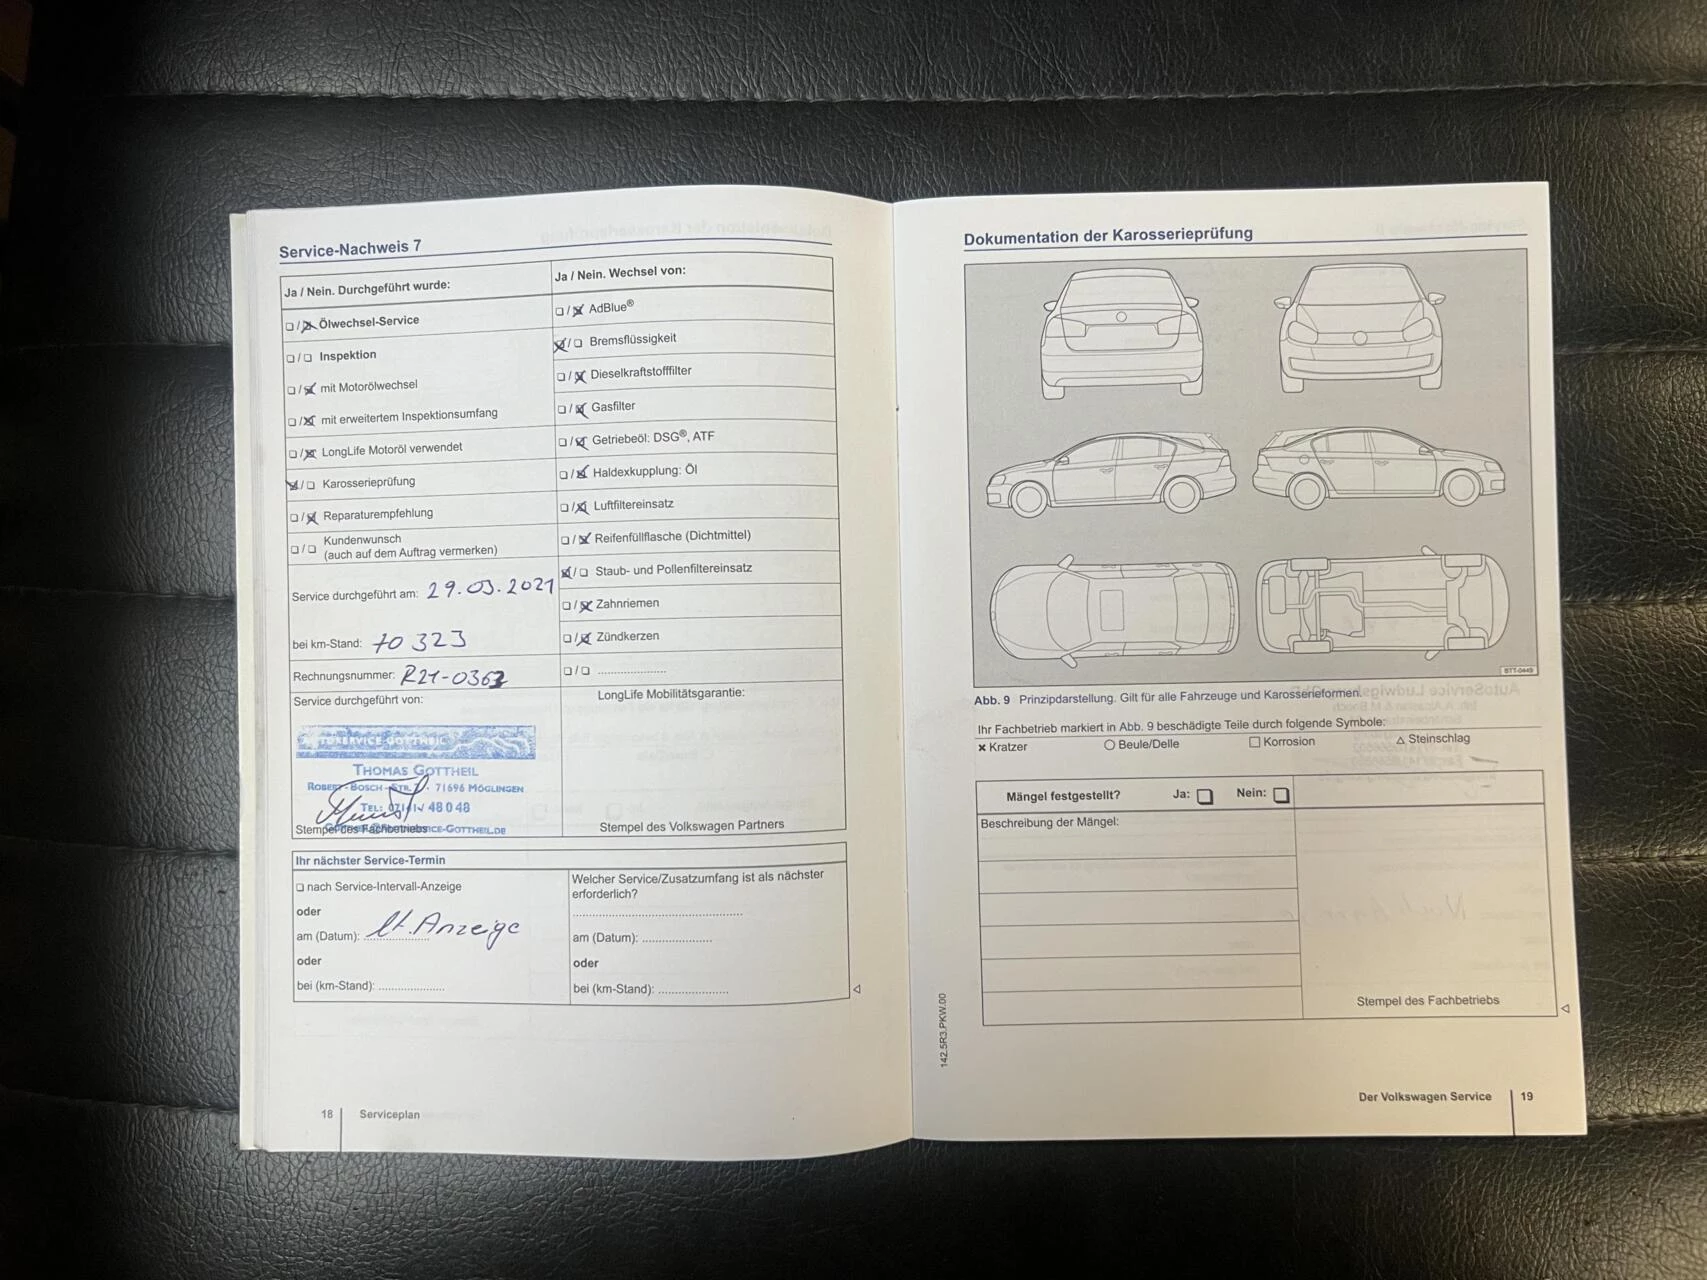 Service-Nachweis 7
Ja / Nein. Durchgeführt wurde:
☐ / ☒ Ölwechsel-Service
☐ / ☐ Inspektion
☐ / ☒ mit Motorölwechsel
☐ / ☒ mit erweitertem Inspektionsumfang
☐ / ☒ LongLife Motoröl verwendet
☒ / ☐ Karosserieprüfung
☐ / ☒ Reparaturempfehlung
☐ / ☐ Kundenwunsch
(auch auf dem Auftrag vermerken)
Service durchgeführt am: 29.03.2021
bei km-Stand: 70 323
Rechnungsnummer: R21-0362
Service durchgeführt von:
AUTOSERVICE-GOTTHEIL
THOMAS GOTTHEIL
ROBERT-BOSCH-STR. 71696 MÖGLINGEN
TEL: 07141 / 48 0 48
Stempel des Fachbetriebs
Ja / Nein. Wechsel von:
☐ / ☒ AdBlue®
☒ / ☐ Bremsflüssigkeit
☐ / ☒ Dieselkraftstofffilter
☐ / ☒ Gasfilter
☐ / ☒ Getriebeöl: DSG®, ATF
☐ / ☒ Haldexkupplung: Öl
☐ / ☒ Luftfiltereinsatz
☐ / ☒ Reifenfüllflasche (Dichtmittel)
☒ / ☐ Staub- und Pollenfiltereinsatz
☐ / ☒ Zahnriemen
☐ / ☒ Zündkerzen
☐ / ☐ ....................
LongLife Mobilitätsgarantie:
Stempel des Volkswagen Partners
Ihr nächster Service-Termin
☐ nach Service-Intervall-Anzeige
oder
am (Datum): lt. Anzeige
oder
bei (km-Stand): ....................
Welcher Service/Zusatzumfang ist als nächster
erforderlich?
..................................................
am (Datum): .....................
oder
bei (km-Stand): .....................
18 Serviceplan
Dokumentation der Karosserieprüfung
BTT-0449
Abb. 9 Prinzipdarstellung. Gilt für alle Fahrzeuge und Karosserieformen.
Ihr Fachbetrieb markiert in Abb. 9 beschädigte Teile durch folgende Symbole:
× Kratzer ○ Beule/Delle ☐ Korrosion △ Steinschlag
Mängel festgestellt? Ja: ☐ Nein: ☐
Beschreibung der Mängel:
Stempel des Fachbetriebs
142.5R3.PKW.00
Der Volkswagen Service 19